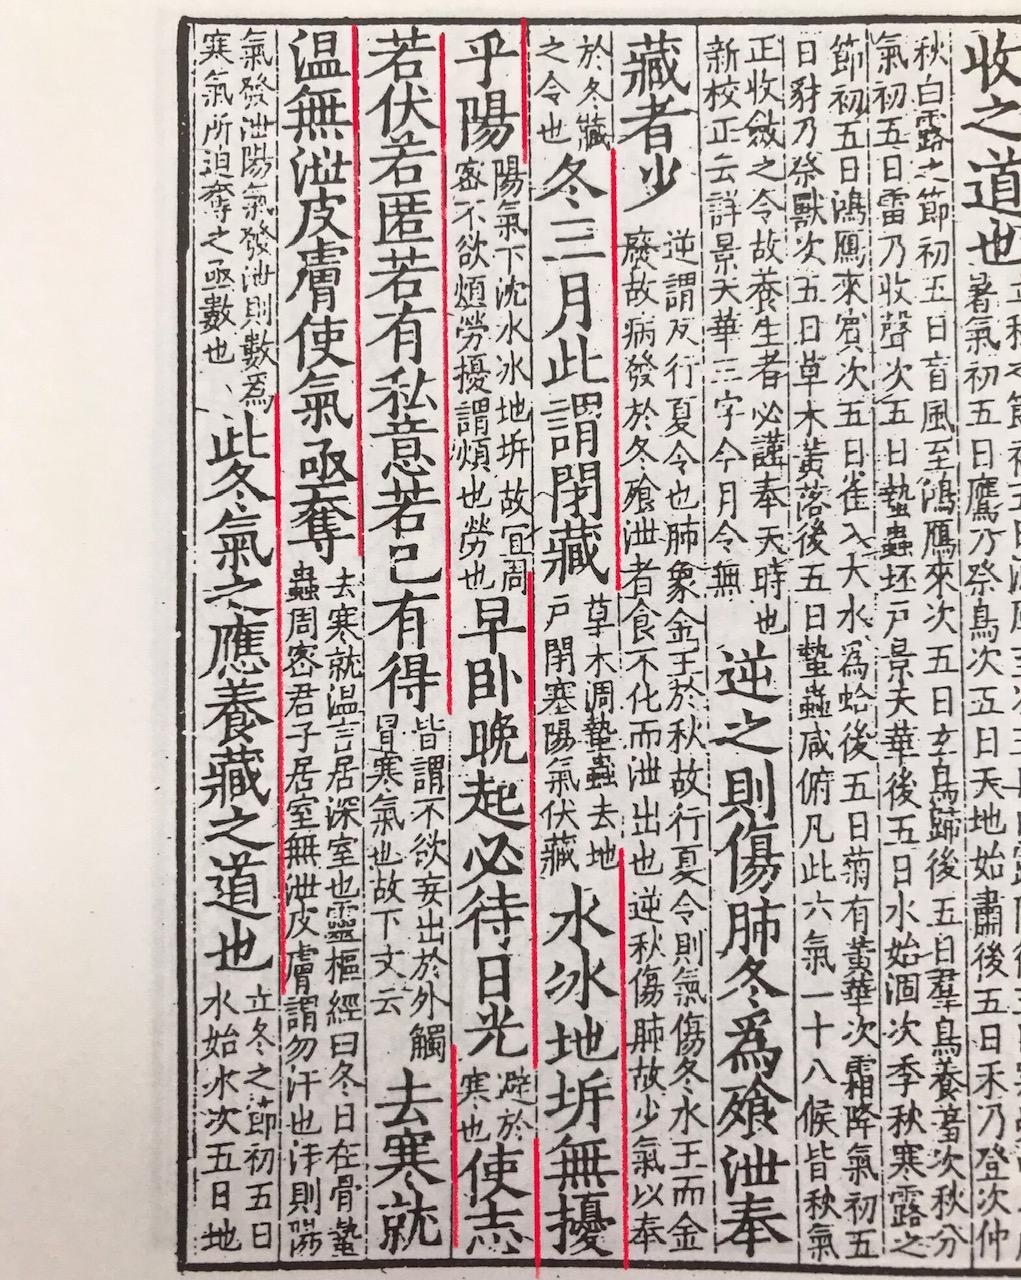 收之道也
暑氣初五日鷹乃祭鳥次五日天地始肅後五日禾乃登次仲
秋白露之節初五日盲風至鴻鴈來次五日玄鳥歸後五日羣鳥養羞次秋分
氣初五日雷乃收聲次五日蟄蟲坯戸景天華後五日水始涸次季秋寒露之
節初五日鴻鴈來賓次五日雀入大水為蛤後五日菊有黃華次霜降氣初五
日豺乃祭獸次五日草木黃落後五日蟄蟲咸俯凡此六氣一十八候皆秋氣
正收斂之令故養生者必謹奉天時也
新校正云詳景天華三字今月令無
逆之則傷肺冬爲飱泄奉
藏者少
逆謂反行夏令也肺象金王於秋故行夏令則氣傷冬水王而金
廢故病發於冬飱泄者食不化而泄出也逆秋傷肺故少氣以奉
於冬藏
之令也
冬三月此謂閉藏
草木凋蟄蟲去地
戸閉塞陽氣伏藏
水冰地坼無擾
乎陽
陽氣下沈水冰地坼故宜周
密不欲煩勞擾謂煩也勞也
早臥晚起必待日光
避於
寒也
使志
若伏若匿若有私意若已有得
皆謂不欲妄出於外觸
冒寒氣也故下文云
去寒就
温無泄皮膚使氣亟奪
去寒就温言居深室也靈樞經曰冬日在骨蟄
蟲周密君子居室無泄皮膚謂勿汗也汗則陽
氣發泄陽氣發泄則數為
寒氣所迫奪之亟數也
此冬氣之應養藏之道也
立冬之節初五日
水始冰次五日地